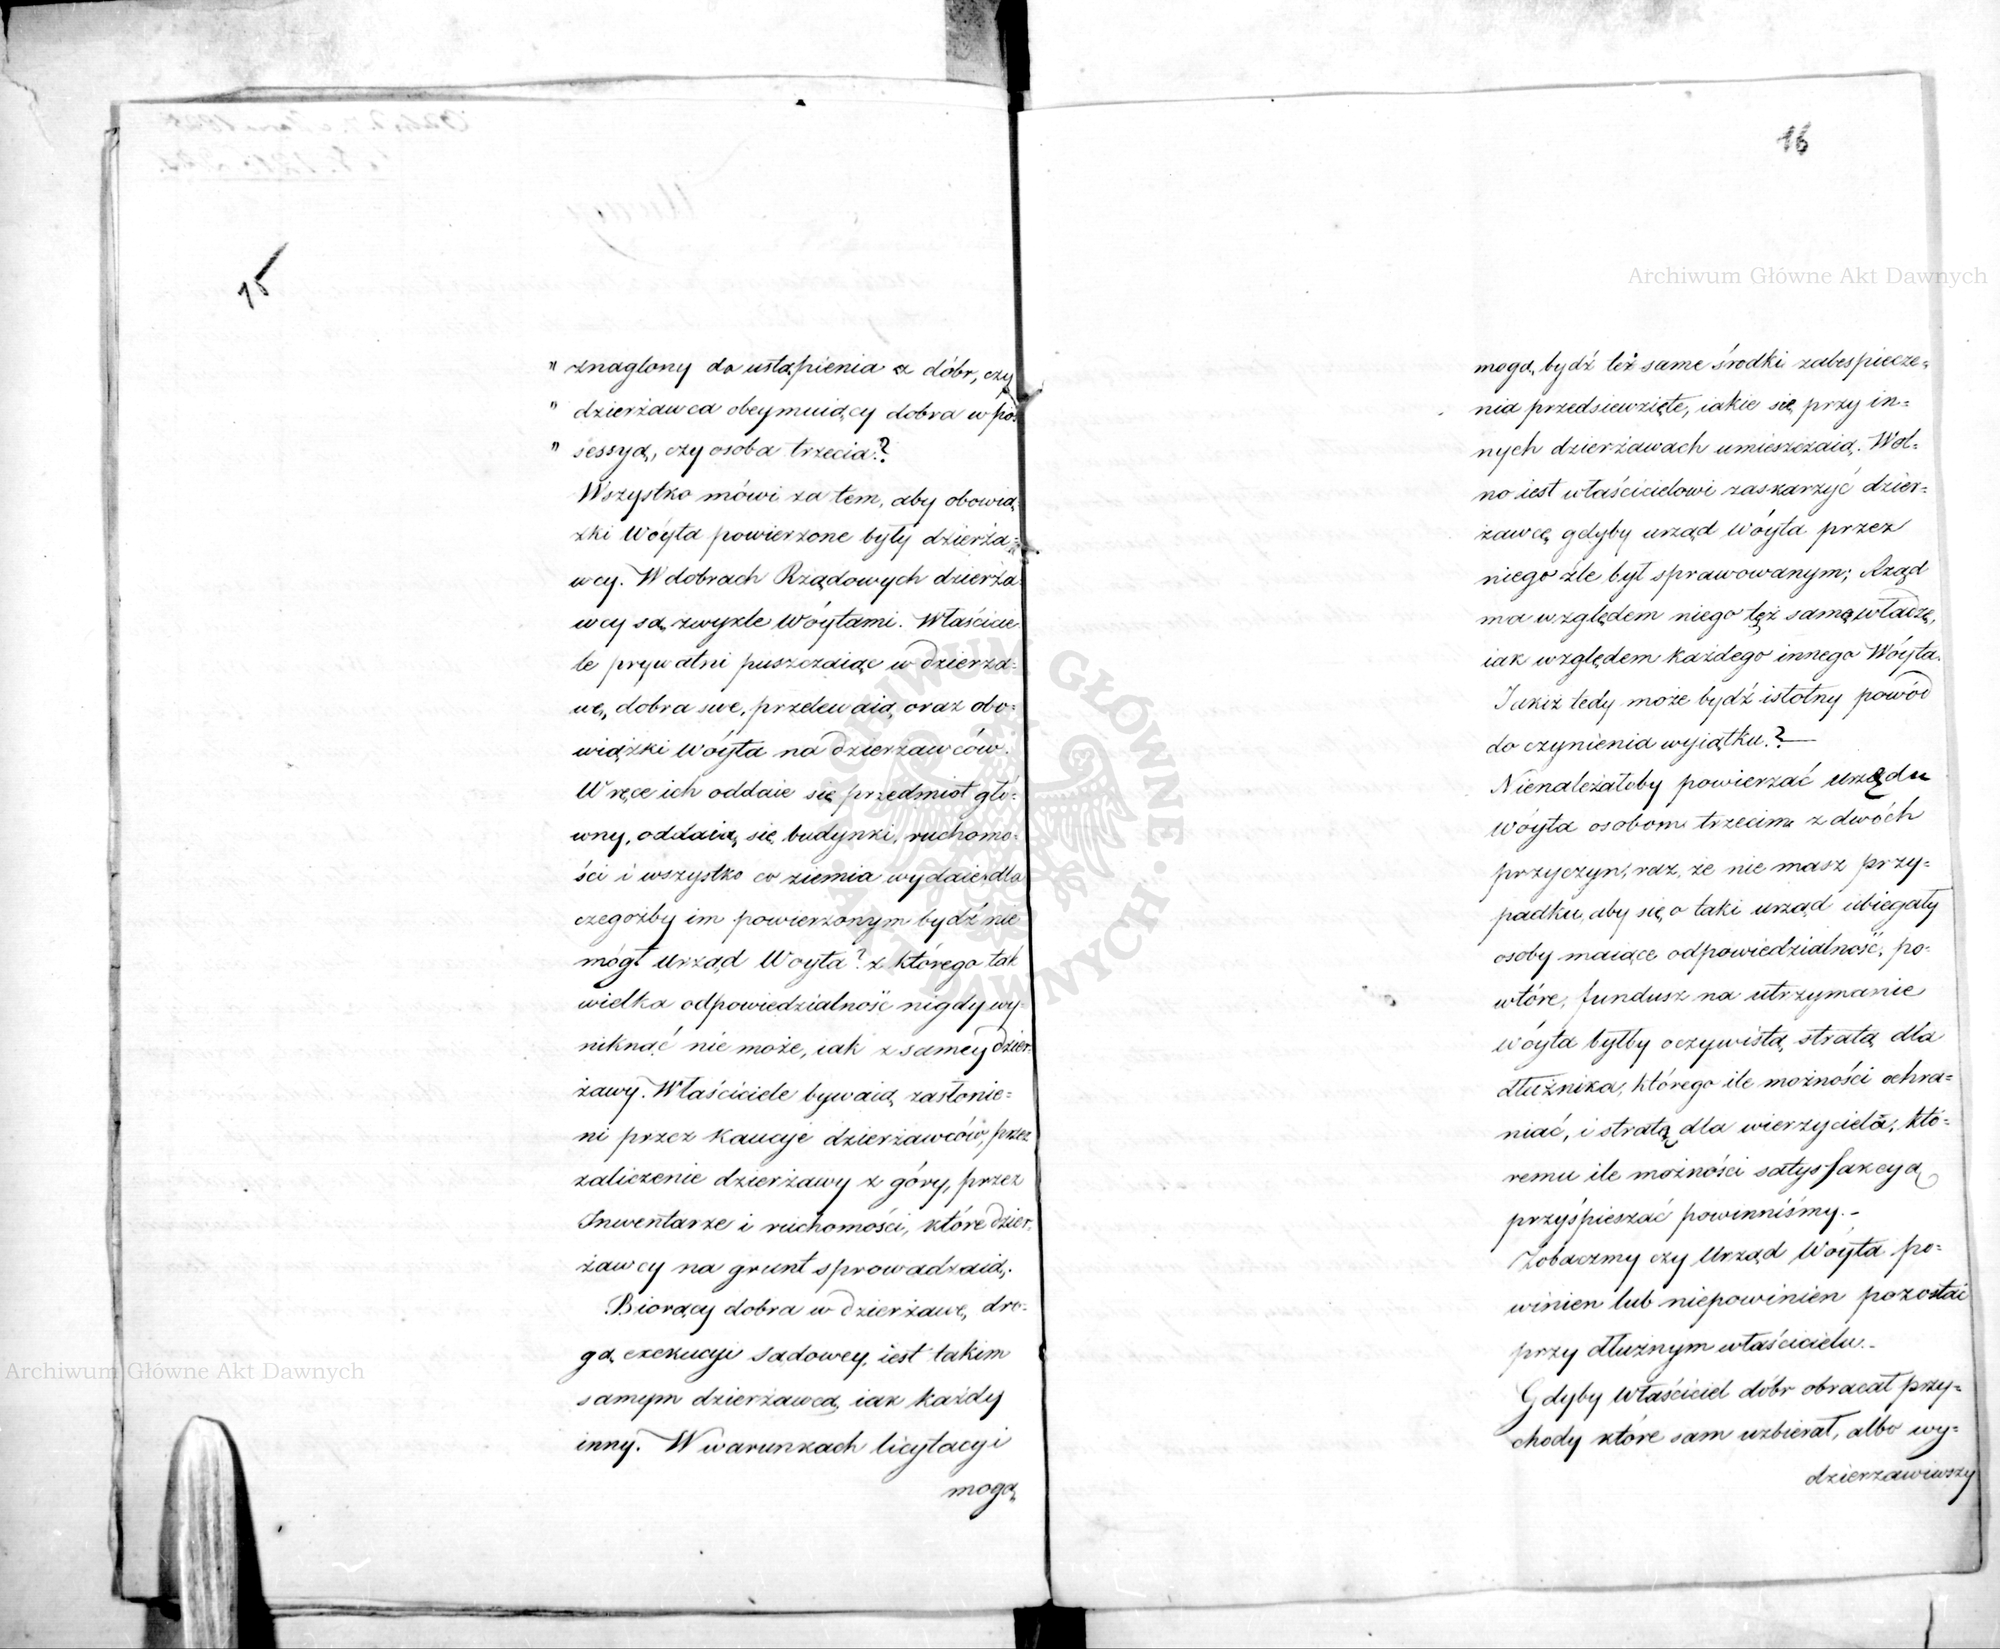 15
" znaglony do ustąpienia z dóbr, czy
" dzierżawca obeymuiący dobra w pos=
" sessyą, czy osoba trzecia?
Wszystko mówi za tem, aby obowią
zki Wóyta powierzone były dzierża=
wcy. W dobrach Rządowych dzierża
wcy są zwykle Wóytami. Właścicie
le prywatni puszczaiąc w dzierża=
wę, dobra swe, przelewaią oraz obo=
wiązki Wóyta na dzierżawców.
W ręce ich oddaie się przedmiot głó=
wny, oddaią się budynki, ruchomo=
ści i wszystko co ziemia wydaie, dla
czegożby im powierzonym bydź nie
mógł Urząd Woyta? z którego tak
wielka odpowiedzialność nigdy wy=
niknąć nie może, iak z samey dzier=
żawy. Właściciele bywaią zasłonie=
ni przez Kaucje dzierżawców, przez
zaliczenie dzierżawy z góry, przez
Inwentarze i ruchomości, które dzier=
żawcy na grunt sprowadzaią.
Biorący dobra w dzierżawę, dro=
gą exekucyi sądowey, iest takim
samym dzierżawcą iak każdy
inny. W warunkach licytacyi
mogą
16
mogą bydź też same środki zabespiecze=
nia przedsięwzięte, iakie się przy in=
nych dzierżawach umieszczaią. Wol=
no iest właścicielowi zaskarzyć dzier=
żawcę gdyby urząd Wóyta przez
niego źle był sprawowanym; Rząd
ma względem niego też samą władzę,
iak względem każdego innego Wóyta.
Jakiż tedy może bydź istotny powód
do czynienia wyiątku?
Nienależałoby powierzać urzędu
Wóyta osobom trzecim z dwóch
przyczyn, raz, że nie masz przy=
padku, aby się o taki urząd ubiegały
osoby maiące odpowiedzialność, po=
wtóre, fundusz na utrzymanie
Wóyta byłby oczywistą stratą dla
dłużnika, którego ile możności ochra=
niać, i stratą dla wierzyciela, któ=
remu ile możności satysfakcyą
przyśpieszać powinniśmy.-
Zobaczmy czy Urząd Wóyta po=
winien lub niepowinien pozostać
przy dłużnym właścicielu.-
Gdyby Właściciel dóbr obracał przy=
chody które sam uzbierał, albo wy=
dzierzawiwszy
Archiwum Główne Akt Dawnych
Archiwum Główne Akt Dawnych
ARCHIWUM GŁÓWNE AKT DAWNYCH